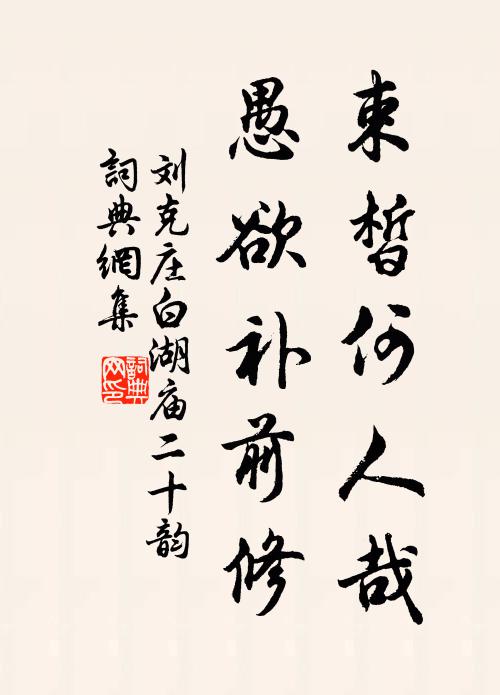 束晳何人哉
愚欲补前修
刘克庄白湖庙二十韵
詞典網集
詞典
网印